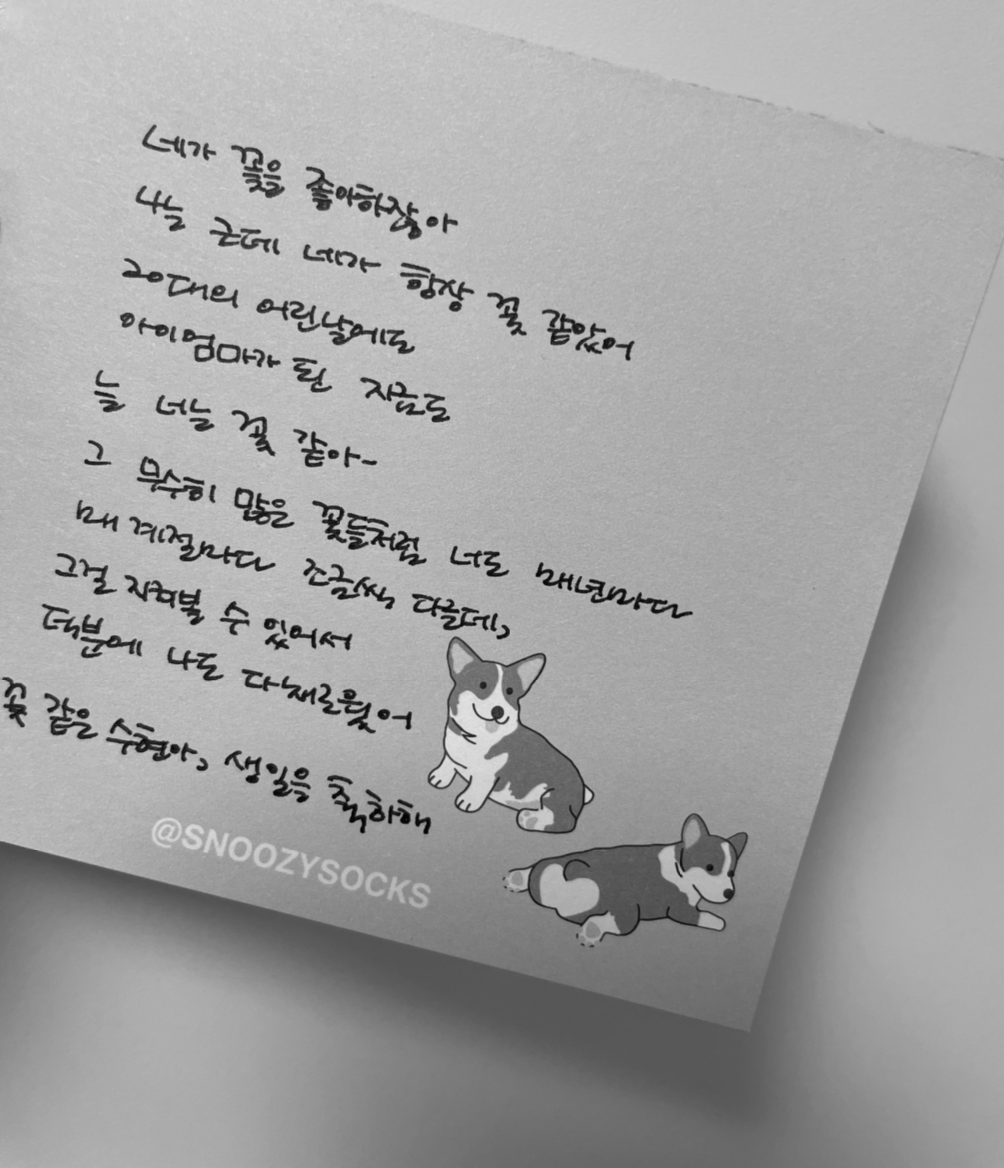 네가 꽃을 좋아하잖아
나는 근데 네가 항상 꽃 같았어
20대의 어린날에도
아이엄마가 된 지금도
늘 너는 꽃 같아-
그 무수히 많은 꽃들처럼 너도 매년마다
매 계절마다 조금씩 다를데,
그걸 지켜볼 수 있어서
덕분에 나도 다채로웠어
꽃 같은 수현아, 생일을 축하해
@SNOOZYSOCKS